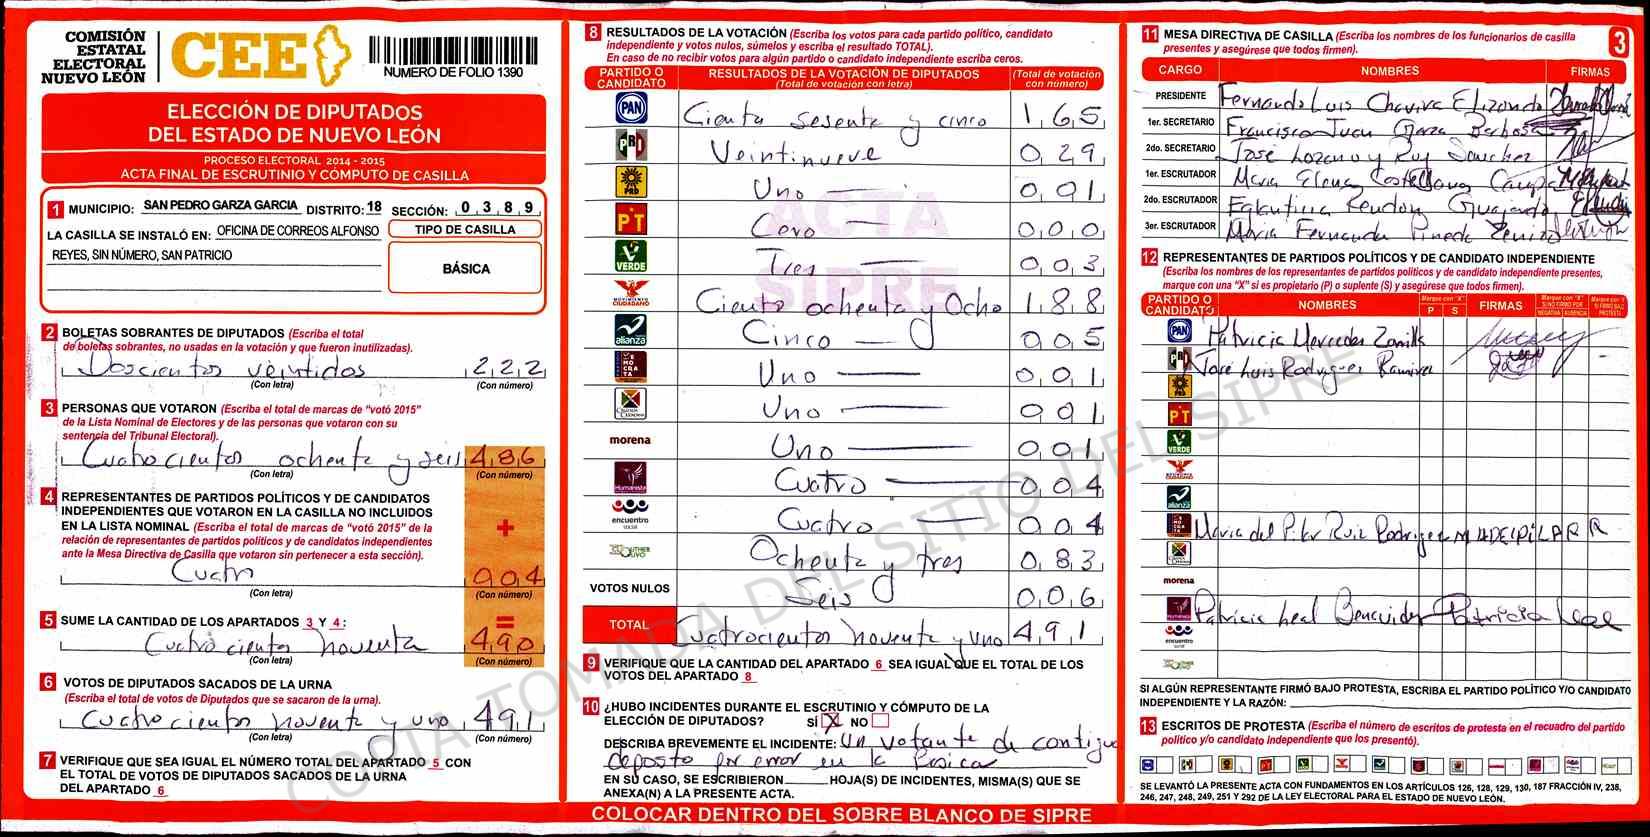 COMISIÓN
ESTATAL
ELECTORAL
NUEVO LEÓN
CEE
NUMERO DE FOLIO 1390
ELECCIÓN DE DIPUTADOS
DEL ESTADO DE NUEVO LEÓN
PROCESO ELECTORAL 2014 - 2015
ACTA FINAL DE ESCRUTINIO Y CÓMPUTO DE CASILLA
1 MUNICIPIO: SAN PEDRO GARZA GARCIA DISTRITO: 18 SECCIÓN: 0389
LA CASILLA SE INSTALÓ EN: OFICINA DE CORREOS ALFONSO
REYES, SIN NÚMERO, SAN PATRICIO
TIPO DE CASILLA
BÁSICA
2 BOLETAS SOBRANTES DE DIPUTADOS (Escriba el total
de boletas sobrantes, no usadas en la votación y que fueron inutilizadas).
Doscientos veintidos 222
(Con letra) (Con número)
3 PERSONAS QUE VOTARON (Escriba el total de marcas de "votó 2015"
de la Lista Nominal de Electores y de las personas que votaron con su
sentencia del Tribunal Electoral).
Cuatrocientos ochenta y seis 486
(Con letra) (Con número)
4 REPRESENTANTES DE PARTIDOS POLÍTICOS Y DE CANDIDATOS
INDEPENDIENTES QUE VOTARON EN LA CASILLA NO INCLUIDOS
EN LA LISTA NOMINAL (Escriba el total de marcas de "votó 2015" de la
relación de representantes de partidos políticos y de candidatos independientes
ante la Mesa Directiva de Casilla que votaron sin pertenecer a esta sección).
+
Cuatro 004
(Con letra) (Con número)
5 SUME LA CANTIDAD DE LOS APARTADOS 3 Y 4: =
Cuatrocientos noventa 490
(Con letra) (Con número)
6 VOTOS DE DIPUTADOS SACADOS DE LA URNA
(Escriba el total de votos de Diputados que se sacaron de la urna).
Cuatrocientos noventa y uno 491
(Con letra) (Con número)
7 VERIFIQUE QUE SEA IGUAL EL NÚMERO TOTAL DEL APARTADO 5 CON
EL TOTAL DE VOTOS DE DIPUTADOS SACADOS DE LA URNA
DEL APARTADO 6
8 RESULTADOS DE LA VOTACIÓN (Escriba los votos para cada partido político, candidato
independiente y votos nulos, súmelos y escriba el resultado TOTAL).
En caso de no recibir votos para algún partido o candidato independiente escriba ceros.
PARTIDO O CANDIDATO RESULTADOS DE LA VOTACIÓN DE DIPUTADOS (Total de votación con letra) (Total de votación con número)
PAN Ciento sesenta y cinco 165
PRI Veintinueve 029
PRD Uno 001
PT Cero 000
VERDE Tres 003
MOVIMIENTO CIUDADANO Ciento ochenta y Ocho 188
alianza Cinco 005
DEMOCRATA Uno 001
CRUZADA CIUDADANA Uno 001
morena Uno 001
Humanista Cuatro 004
encuentro social Cuatro 004
Ochenta y tres 083
VOTOS NULOS Seis 006
TOTAL Cuatrocientos noventa y uno 491
ACTA
SIPRE
9 VERIFIQUE QUE LA CANTIDAD DEL APARTADO 6 SEA IGUAL QUE EL TOTAL DE LOS
VOTOS DEL APARTADO 8
10 ¿HUBO INCIDENTES DURANTE EL ESCRUTINIO Y CÓMPUTO DE LA
ELECCIÓN DE DIPUTADOS? SÍ X NO
DESCRIBA BREVEMENTE EL INCIDENTE: Un votante de contigua
deposto por error en la basica
EN SU CASO, SE ESCRIBIERON HOJA(S) DE INCIDENTES, MISMA(S) QUE SE
ANEXA(N) A LA PRESENTE ACTA.
COLOCAR DENTRO DEL SOBRE BLANCO DE SIPRE
11 MESA DIRECTIVA DE CASILLA (Escriba los nombres de los funcionarios de casilla
presentes y asegúrese que todos firmen).
3
CARGO NOMBRES FIRMAS
PRESIDENTE Fernando Luis Chavira Elizondo
1er. SECRETARIO Francisco Juan Garza Barbosa
2do. SECRETARIO Jose Lozano y Ruy Sanchez
1er. ESCRUTADOR Maria Elena Castellanos
2do. ESCRUTADOR Eglantina Rendon Guajardo
3er. ESCRUTADOR Maria Fernanda Pineda
12 REPRESENTANTES DE PARTIDOS POLÍTICOS Y DE CANDIDATO INDEPENDIENTE
(Escriba los nombres de los representantes de partidos políticos y de candidato independiente presentes,
marque con una "X" si es propietario (P) o suplente (S) y asegúrese que todos firmen).
PARTIDO O CANDIDATO NOMBRES Marque con "X" P S FIRMAS Marque con "X" SI NO FIRMÓ POR NEGATIVA AUSENCIA Marque con "X" SI FIRMÓ BAJO PROTESTA
PAN Patricia Mercedes Zorrilla
PRI Jose Luis Rodriguez Ramirez
PRD
PT
VERDE
MOVIMIENTO CIUDADANO
alianza
DEMOCRATA Maria del Pilar Ruiz Rodriguez MA DEL PILAR R R
morena
Humanista Patricia Leal Benavides Patricia Leal
encuentro social
SI ALGÚN REPRESENTANTE FIRMÓ BAJO PROTESTA, ESCRIBA EL PARTIDO POLÍTICO Y/O CANDIDATO
INDEPENDIENTE Y LA RAZÓN:
13 ESCRITOS DE PROTESTA (Escriba el número de escritos de protesta en el recuadro del partido
político y/o candidato independiente que los presentó).
SE LEVANTÓ LA PRESENTE ACTA CON FUNDAMENTOS EN LOS ARTÍCULOS 126, 128, 129, 130, 187 FRACCIÓN IV, 238,
246, 247, 248, 249, 251 Y 292 DE LA LEY ELECTORAL PARA EL ESTADO DE NUEVO LEÓN.
COPIA TOMADA DEL SITIO DEL SIPRE